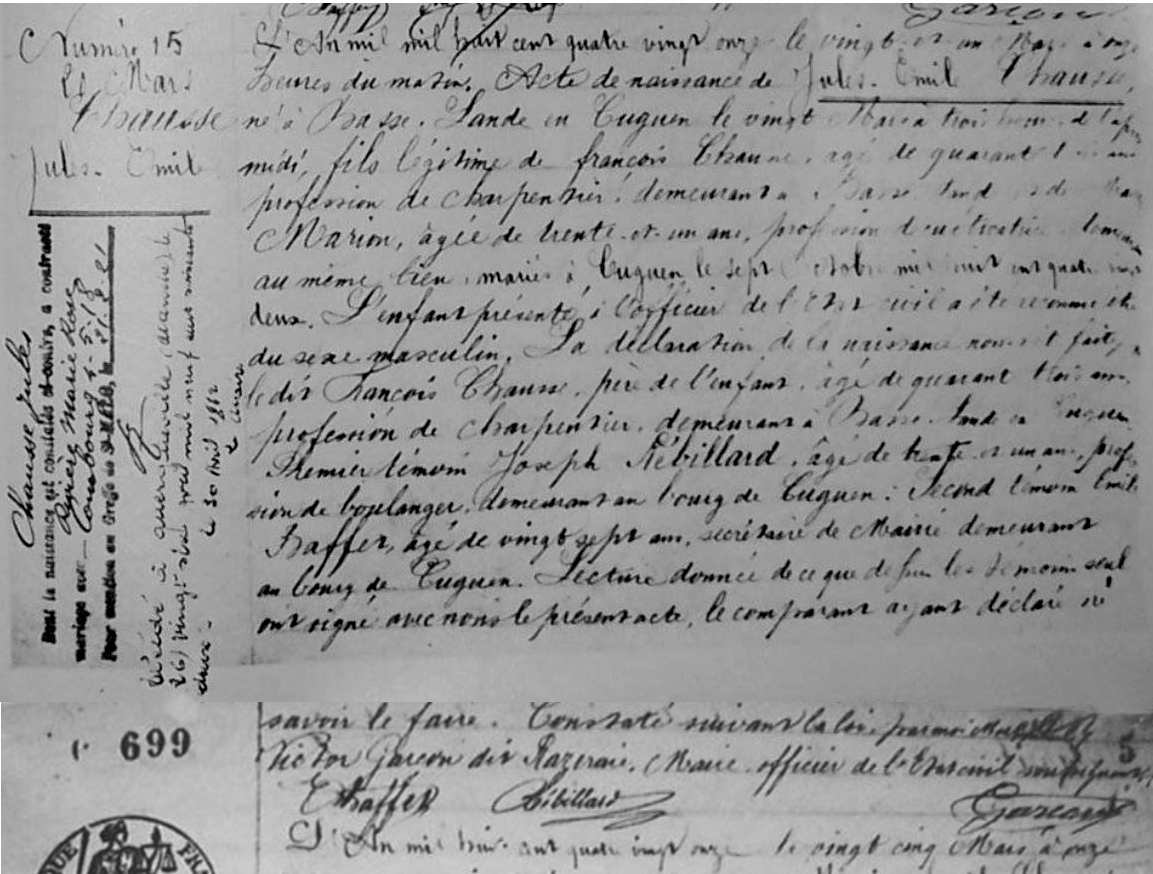 Garçon
Numéro 15
21 Mars
Chausse
Jules-Emile
L'An mil mil huit cent quatre vingt onze le vingt et un Mars à onze
heures du matin. Acte de naissance de Jules-Emile Chausse,
né à Basse-Lande en Cuguen le vingt Mars à trois heures de l'après
midi, fils légitime de françois Chausse, agé de quarant trois ans
profession de charpentier, demeurant à Basse Lande et de
Marion, âgée de trente-et-un ans, profession de
au même lieu, mariés à Cuguen le sept octobre mil huit cent quatre vingt
deux. L'enfant présenté à l'officier de l'Etat civil a été reconnu être
du sexe masculin. La déclaration de la naissance nous est faite
le dit François Chausse, père de l'enfant, âgé de quarant trois ans,
profession de charpentier, demeurant à Basse-Lande en Cuguen
Premier témoin Joseph Rébillard, âgé de trente et un ans, profes
sion de boulanger, demeurant au bourg de Cuguen. Second témoin Emile
Haffer, âgé de vingt sept ans, secrétaire de Mairie demeurant
au bourg de Cuguen. Lecture donnée de ce que dessus les témoins seul
ont signé avec nous le présent acte, le comparant ayant déclaré ne
Chausse Jules
Dont la naissance est constatée ci-contre, a contracté
mariage avec Marie Rose
Combourg le 5.1.8
Pour mention au Greffe le 31.8.21
Décédé à
26) vingt six mil neuf cent soixante
deux -
le 30 Avril 1962
699
savoir le faire. Constaté suivant la loi par moi
Victor Garçon dit Razeraie, Maire officier de l'Etat civil
5
E Haffer Rébillard Garçon
L'An mil huit cent quatre vingt onze le vingt cinq Mars à onze